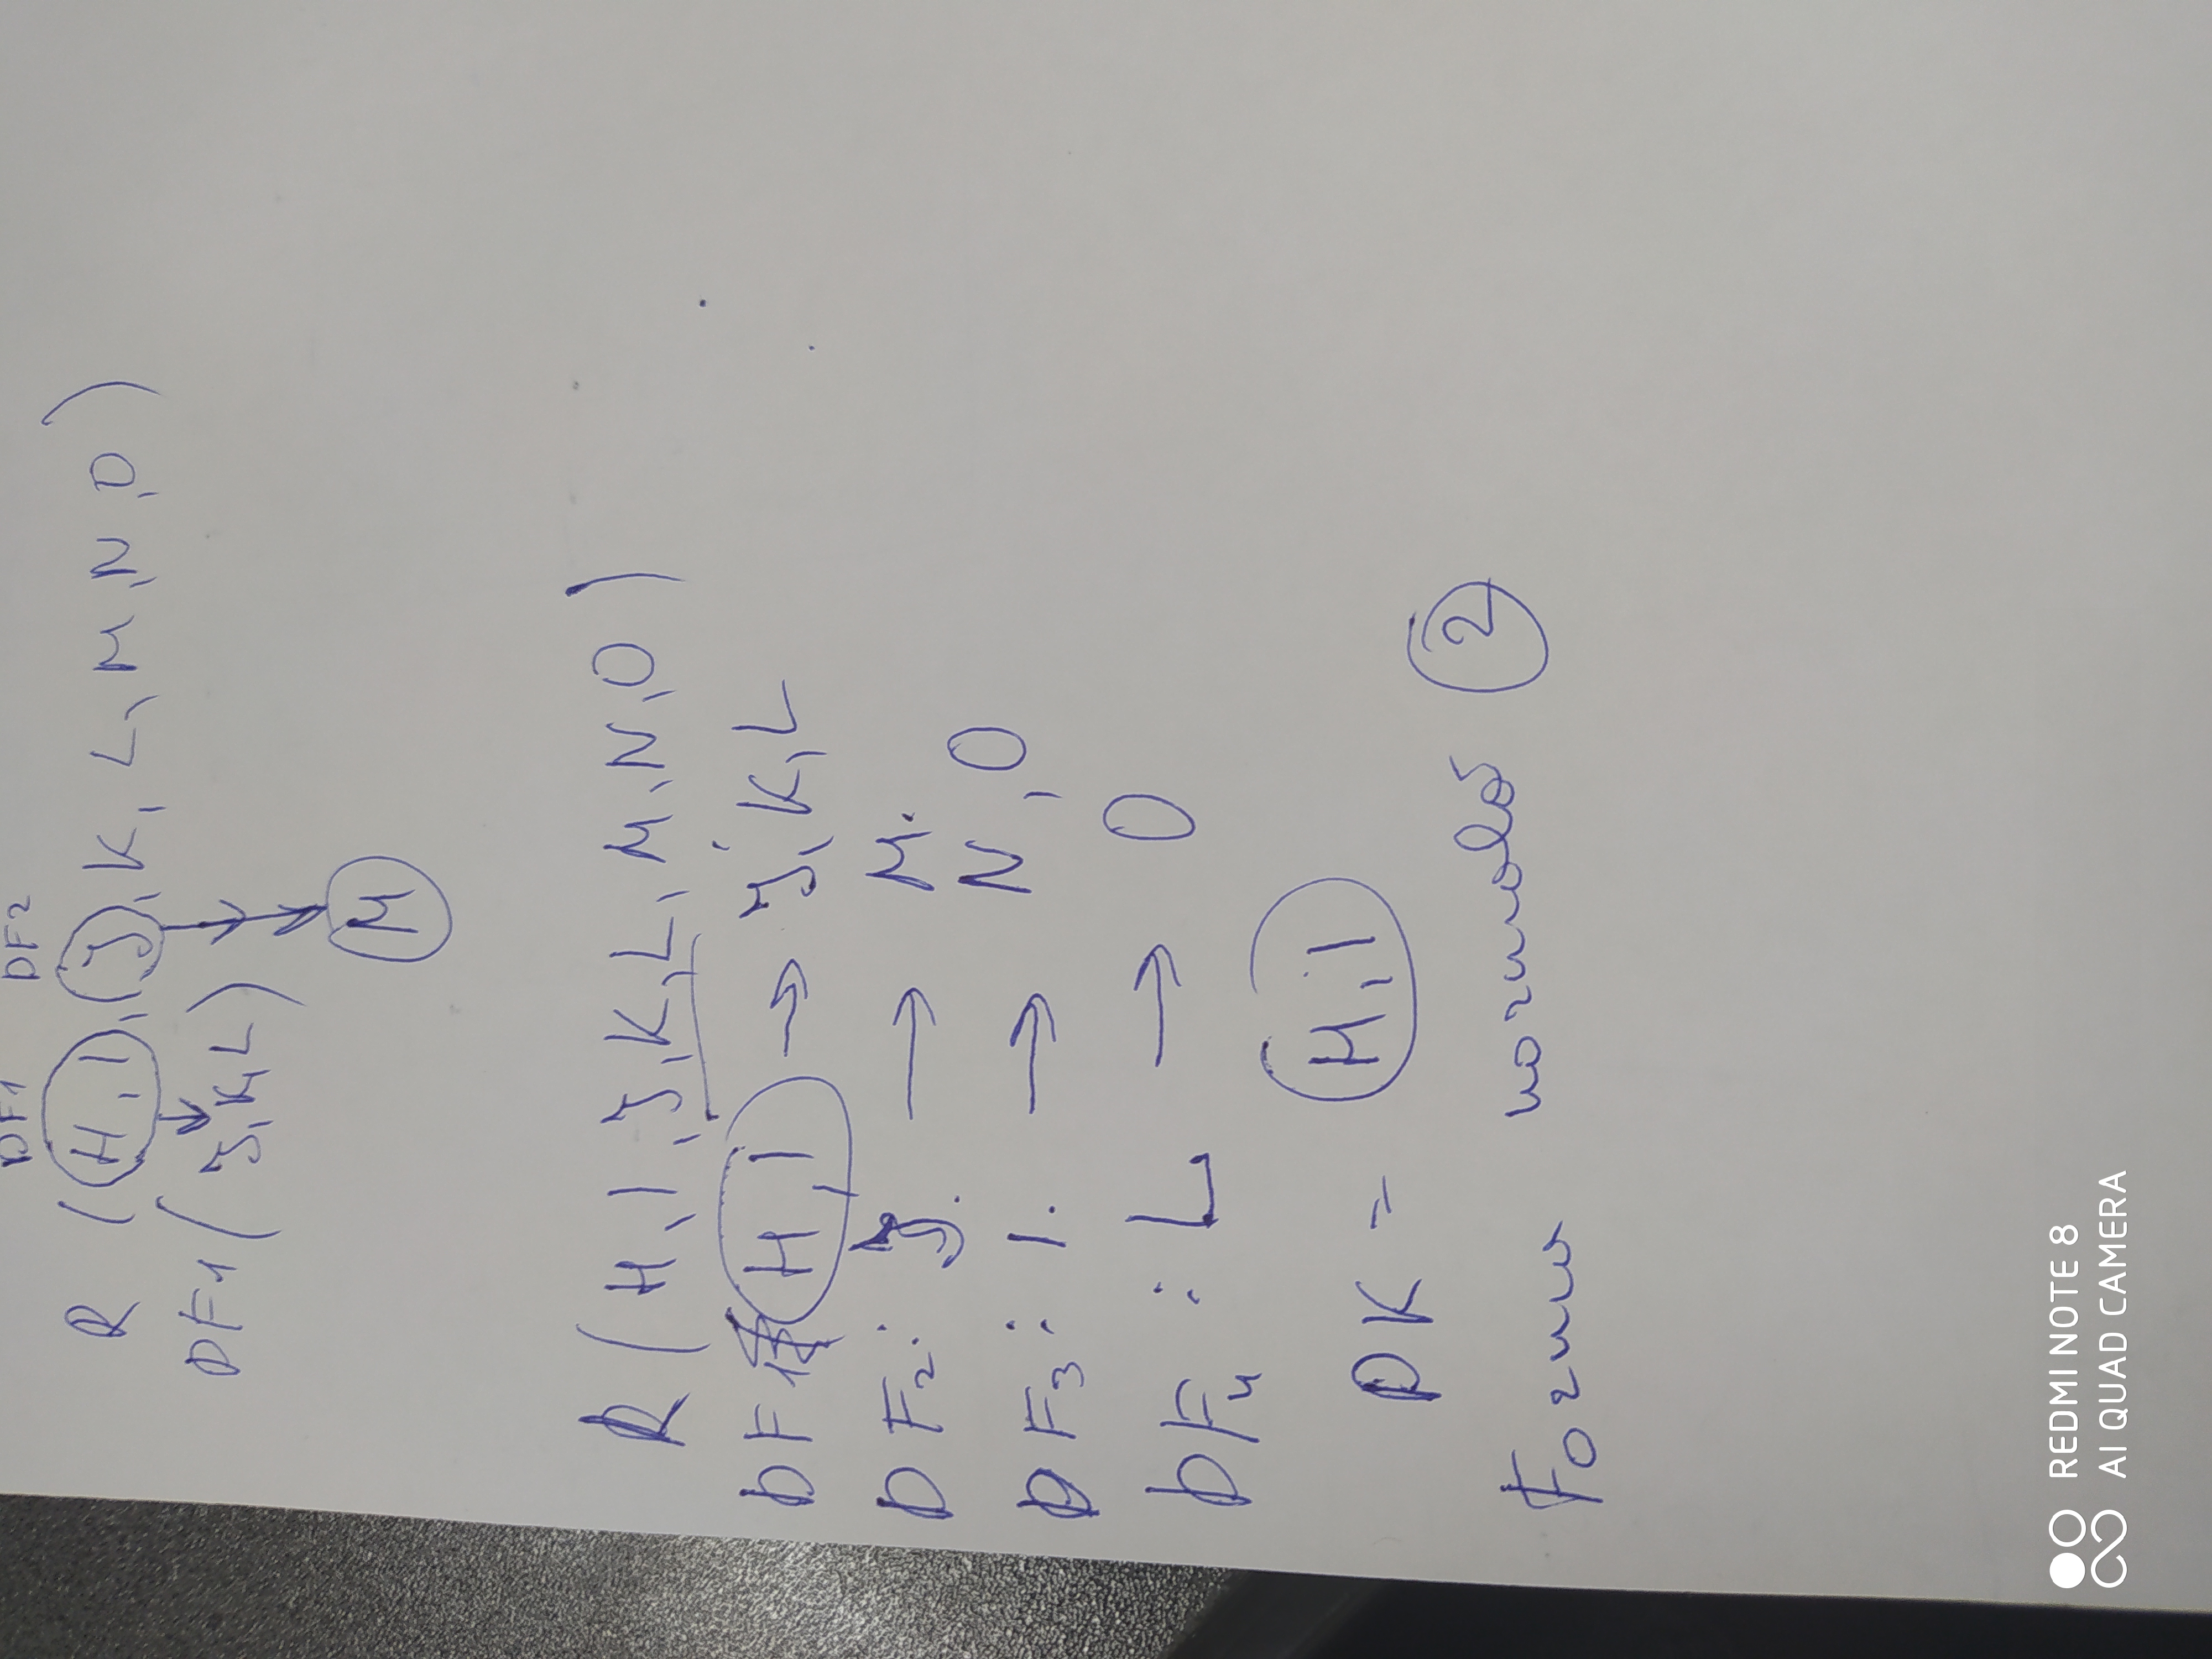 DF1 DF2
R (H, I, J, K, L, M, N, O)
DF1 (J, K, L)
M
R (H, I, J, K, L, M, N, O)
DF1 H, I → J, K, L
DF2: J. → M.
DF3: I. → N, O
DF4: L → O
PK = H, I
Forma normală 2
REDMI NOTE 8
AI QUAD CAMERA